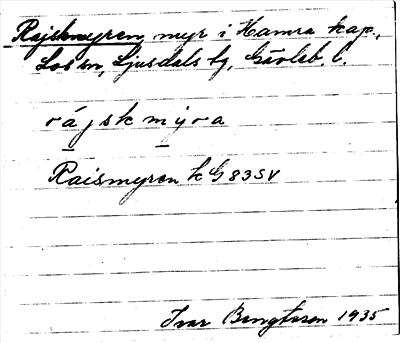 Rajskmyren, myr i Hamra kap.,
Los sn, Ljusdals tg, Gävleb. l.
rájskmyra
Raismyren k G83SV
Ivar Bengtsson 1935